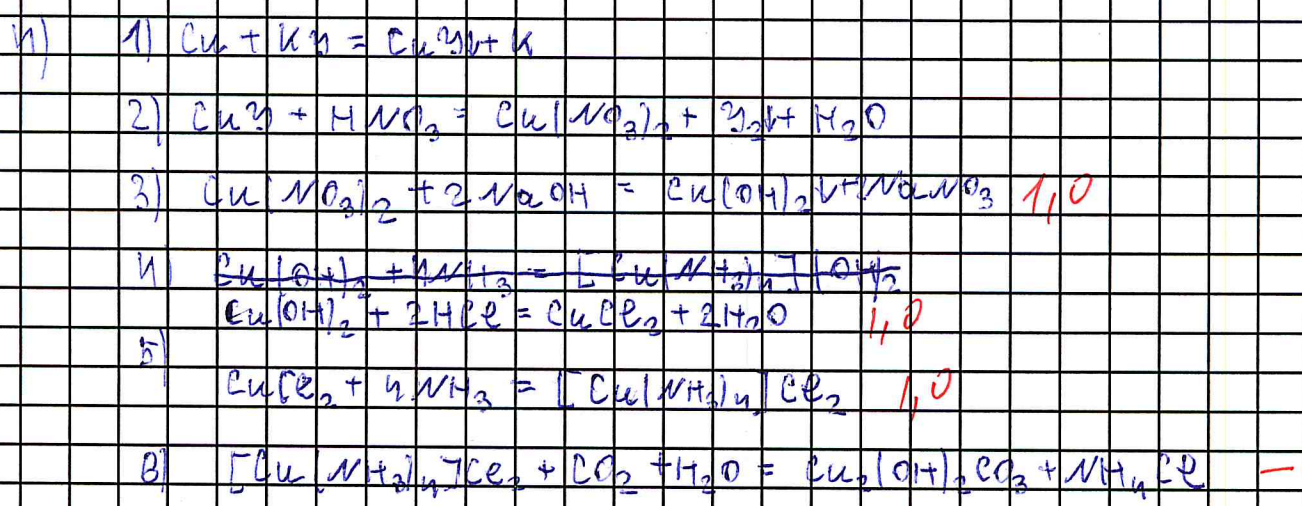 4) 1) Cu + KI = CuI↓ + K
2) CuI + HNO₃ = Cu(NO₃)₂ + I₂↓ + H₂O
3) Cu(NO₃)₂ + 2NaOH = Cu(OH)₂↓ + NaNO₃ 1,0
4) Cu(OH)₂ + 4NH₃ = [Cu(NH₃)₄](OH)₂
Cu(OH)₂ + 2HCl = CuCl₂ + 2H₂O 1,0
5)
CuCl₂ + 4NH₃ = [Cu(NH₃)₄]Cl₂ 1,0
6) [Cu(NH₃)₄]Cl₂ + CO₂ + H₂O = Cu₂(OH)₂CO₃ + NH₄Cl –